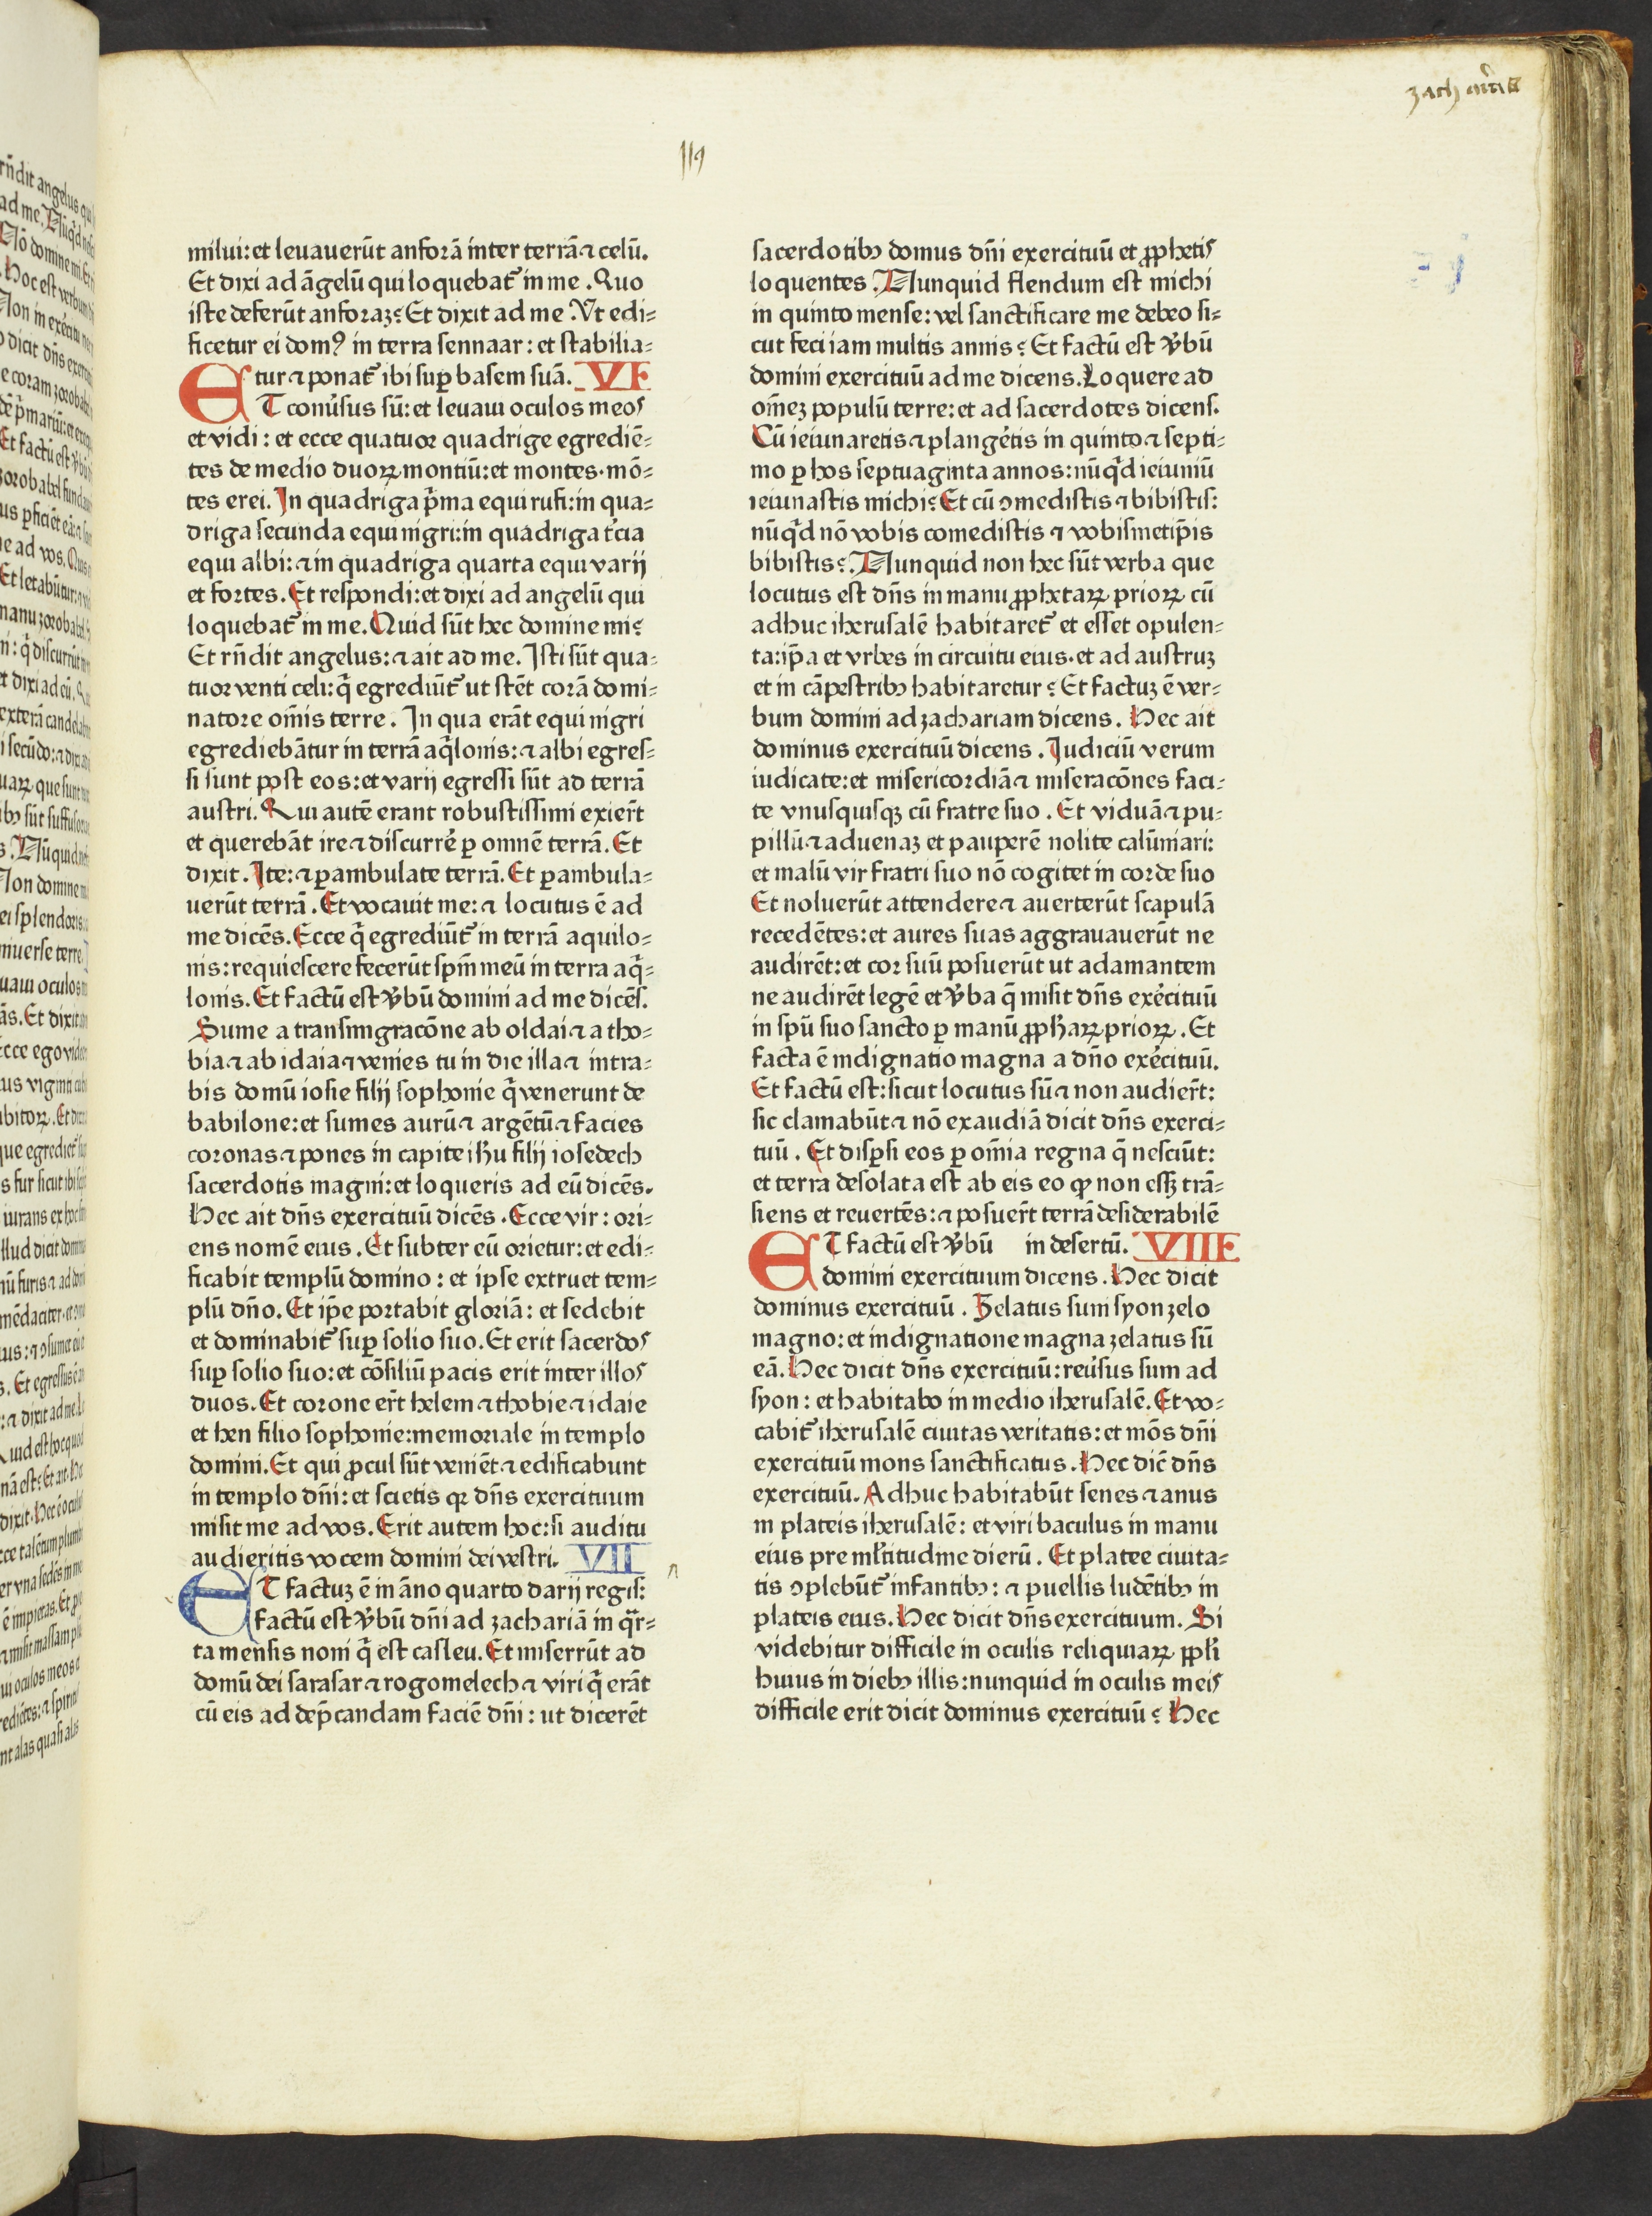 zach
119
milui: et leuauerūt anforā inter terrā ⁊ celū.
Et dixi ad āgelū qui loquebat᷑ in me. Quo
iste deferūt anforaz? Et dixit ad me. Vt edi=
ficetur ei domꝰ in terra sennaar: et stabilia=
tur ⁊ ponat᷑ ibi suꝑ basem suā. VI
ET conu̓sus sū: et leuaui oculos meos
et vidi: et ecce quatuor quadrige egrediē=
tes de medio duoꝝ montiū: et montes. mō=
tes erei. In quadriga p̄ma equi rufi: in qua=
driga secunda equi nigri: in quadriga t̓cia
equi albi: ⁊ in quadriga quarta equi varij
et fortes. Et respondi: et dixi ad angelū qui
loquebat᷑ in me. Quid sūt hec domine mi?
Et rn̄dit angelus: ⁊ ait ad me. Isti sūt qua=
tuor venti celi: q̄ egrediūt᷑ ut stēt corā domi=
natore om̄is terre. In qua erāt equi nigri
egrediebātur in terrā aq̄lonis: ⁊ albi egres=
si sunt post eos: et varij egressi sūt ad terrā
austri. Qui autē erant robustissimi exier̄t
et querebāt ire ⁊ discurre̓ ꝑ omnē terrā. Et
dixit. Ite: ⁊ ꝑambulate terrā. Et ꝑambula=
uerūt terrā. Et vocauit me: ⁊ locutus ē ad
me dicēs. Ecce q̄ egrediūt᷑ in terrā aquilo=
nis: requiescere fecerūt spm̄ meū in terra aq̄=
lonis. Et factū est v̓bū domini ad me dicēs.
Sume a transmigracōne ab oldai ⁊ a tho=
bia ⁊ ab idaia ⁊ venies tu in die illa ⁊ intra=
bis domū iosie filij sophonie q̄ venerunt de
babilone: et sumes aurū ⁊ argētū ⁊ facies
coronas ⁊ pones in capite ihu̅ filij iosedech
sacerdotis magni: et loqueris ad eū dicēs.
Hec ait dn̄s exercituū dicēs. Ecce vir: ori=
ens nomē eius. Et subter eū orietur: et edi=
ficabit templū domino: et ipse extruet tem=
plū dn̄o. Et ip̄e portabit gloriā: et sedebit
et dominabit᷑ suꝑ solio suo. Et erit sacerdos
suꝑ solio suo: et cōsiliū pacis erit inter illos
duos. Et corone er̄t helem ⁊ thobie ⁊ idaie
et hen filio sophonie: memoriale in templo
domini. Et qui ꝓcul sūt veniēt ⁊ edificabunt
in templo dn̄i: et scietis qꝛ dn̄s exercituum
misit me ad vos. Erit autem hoc: si auditu
audieritis vocem domini dei vestri. VII
ET factuz ē in āno quarto darij regis:
factū est v̓bū dn̄i ad zachariā in qr̄=
ta mensis noni q̄ est casleu. Et miserrūt ad
domū dei sarasar ⁊ rogomelech ⁊ viri q̄ erāt
cū eis ad dep̄candam faciē dn̄i: ut dicerēt
sacerdotibꝫ domus dn̄i exercituū et ꝓphetis
loquentes. Nunquid flendum est michi
in quinto mense: vel sanctificare me debeo si=
cut feci iam multis annis? Et factū est v̓bū
domini exercituū ad me dicens. Loquere ad
om̄ez populū terre: et ad sacerdotes dicens.
Cū ieiunaretis ⁊ plangētis in quinto ⁊ septi=
mo ꝑ hos septuaginta annos: nūq̄d ieiuniū
ieiunastis michi? Et cū ꝯmedistis ⁊ bibistis:
nūq̄d nō vobis comedistis ⁊ vobismetip̄is
bibistis? Nunquid non hec sūt verba que
locutus est dn̄s in manu ꝓphetaꝝ prioꝝ cū
adhuc iherusalē habitaret᷑ et esset opulen=
ta: ip̄a et vrbes in circuitu eius. et ad austruz
et in cāpestribꝫ habitaretur? Et factuz ē ver=
bum domini ad zachariam dicens. Hec ait
dominus exercituū dicens. Iudiciū verum
iudicate: et misericordiā ⁊ miseracōnes faci=
te vnusquisqꝫ cū fratre suo. Et viduā ⁊ pu=
pillū ⁊ aduenaz et pauperē nolite calūmari:
et malū vir fratri suo nō cogitet in corde suo
Et noluerūt attendere ⁊ auerterūt scapulā
recedētes: et aures suas aggrauauerūt ne
audirēt: et cor suū posuerūt ut adamantem
ne audirēt legē et v̓ba q̄ misit dn̄s exe̓cituū
in spū suo sancto ꝑ manū ꝓpħaꝝ prioꝝ. Et
facta ē indignatio magna a dn̄o exe̓cituū.
Et factū est: sicut locutus sū ⁊ non audier̄t:
sic clamabūt ⁊ nō exaudiā dicit dn̄s exerci=
tuū. Et disꝑsi eos ꝑ om̄ia regna q̄ nesciūt:
et terra desolata est ab eis eo ꝙ non essꝫ trā=
siens et reuertēs: ⁊ posuer̄t terrā desiderabilē
in desertū. VIII
ET factū est v̓bū
domini exercituum dicens. Hec dicit
dominus exercituū. Zelatus sum syon zelo
magno: et indignatione magna zelatus sū
eā. Hec dicit dn̄s exercituū: reu̓sus sum ad
syon: et habitabo in medio iherusalē. Et vo=
cabit᷑ iherusalē ciuitas veritatis: et mōs dn̄i
exercituū mons sanctificatus. Hec dic̄ dn̄s
exercituū. Adhuc habitabūt senes ⁊ anus
in plateis iherusalē: et viri baculus in manu
eius pre ml̓titudine dierū. Et platee ciuita=
tis ꝯplebūt᷑ infantibꝫ: ⁊ puellis ludētibꝫ in
plateis eius. Hec dicit dn̄s exercituum. Si
videbitur difficile in oculis reliquiaꝝ ppl̓i
huius in diebꝫ illis: nunquid in oculis meis
difficile erit dicit dominus exercituū? Hec